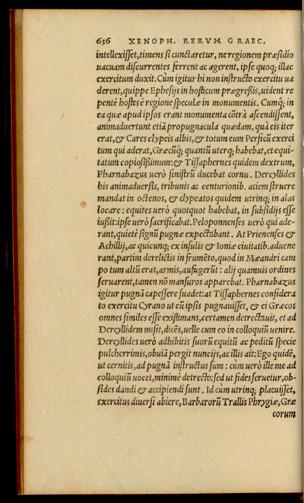 636 XENOPH. RERVM GRAEC.
intellexisset, timens si cunctaretur, ne regionem præsidio
uacuam discurrentes ferrent ac agerent, ipse quoq; illac
exercitum duxit. Cùm igitur hi non instructo exercitu ua
derent, quippe Ephesijs in hosticum prægressis, uident re
pentè hostes è regione speculæ in monumentis. Cumq́; in
ea quæ apud ipsos erant monumenta cõtrà ascendissent,
animaduertunt etiã propugnacula quædam, quà eis iter
erat, & Cares clypeis albis, & totum eam Persicũ exerci
tum qui aderat, Græcũq́; quantũ uterq; habebat, et equi-
tatum copiosissimum: & Tissaphernes quidem dextrum,
Pharnabazus uerò sinistrũ ducebat cornu. Dercyllides
his animaduersis, tribunis ac centurionib. aciem struere
mandat in octenos, & clypeatos quidem utrinq; in alas
locare: equites uerò quotquot habebat, in subsidijs esse
iussit: ipse uerò sacrificabat. Peloponnenses uerò qui ade-
rant, quietè signũ pugnæ expectabant. At Prienenses &
Achillij, ac quicunq; ex insulis & Ioniæ ciuitatib. aduene
rant, partim derelictis in frumẽto, quod in Mæandri cam
po tum altũ erat, armis, aufugerũt: alij quamuis ordines
seruarent, tamen nõ mansuros apparebat. Pharnabazus
igitur pugnã capessere suadet: at Tissaphernes considera
to exercitu Cyrano ut cũ ipsis pugnauisset, & ei Græcos
omnes similes esse existimans, certamen detrectauit, et ad
Dercyllidem misit, dicẽs, uelle cum eo in colloquiũ uenire.
Dercyllides uerò adhibitis suorũ equitũ ac peditũ specie
pulcherrimis, obuià pergit nuncijs, ac illis ait: Ego quidẽ,
ut cernitis, ad pugnã instructus sum: cùm uerò ille me ad
colloquiũ uocet, minimè detrecto: sed ut fides seruetur, ob-
sides dandi & accipiendi sunt. Id cùm utrinq; placuisset,
exercitus diuersi abiere, Barbarorũ Trallis Phrygiæ, Græ
corum